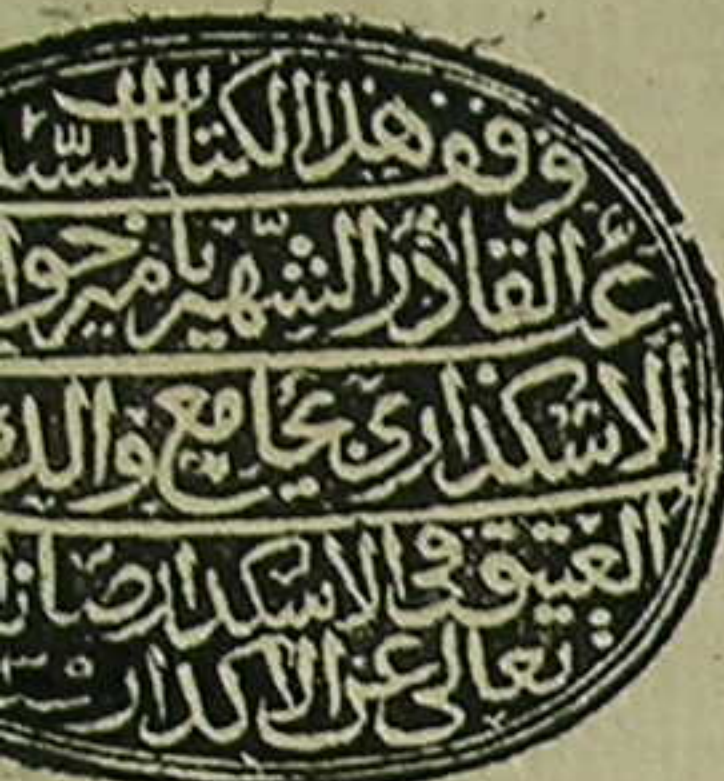 وقف هذا الكتاب السيد
عبد القادر الشهير بامير خوا
الاسكداري بجامع والد
العتيق في الاسكدار صانها
تعالى عن الاكدار